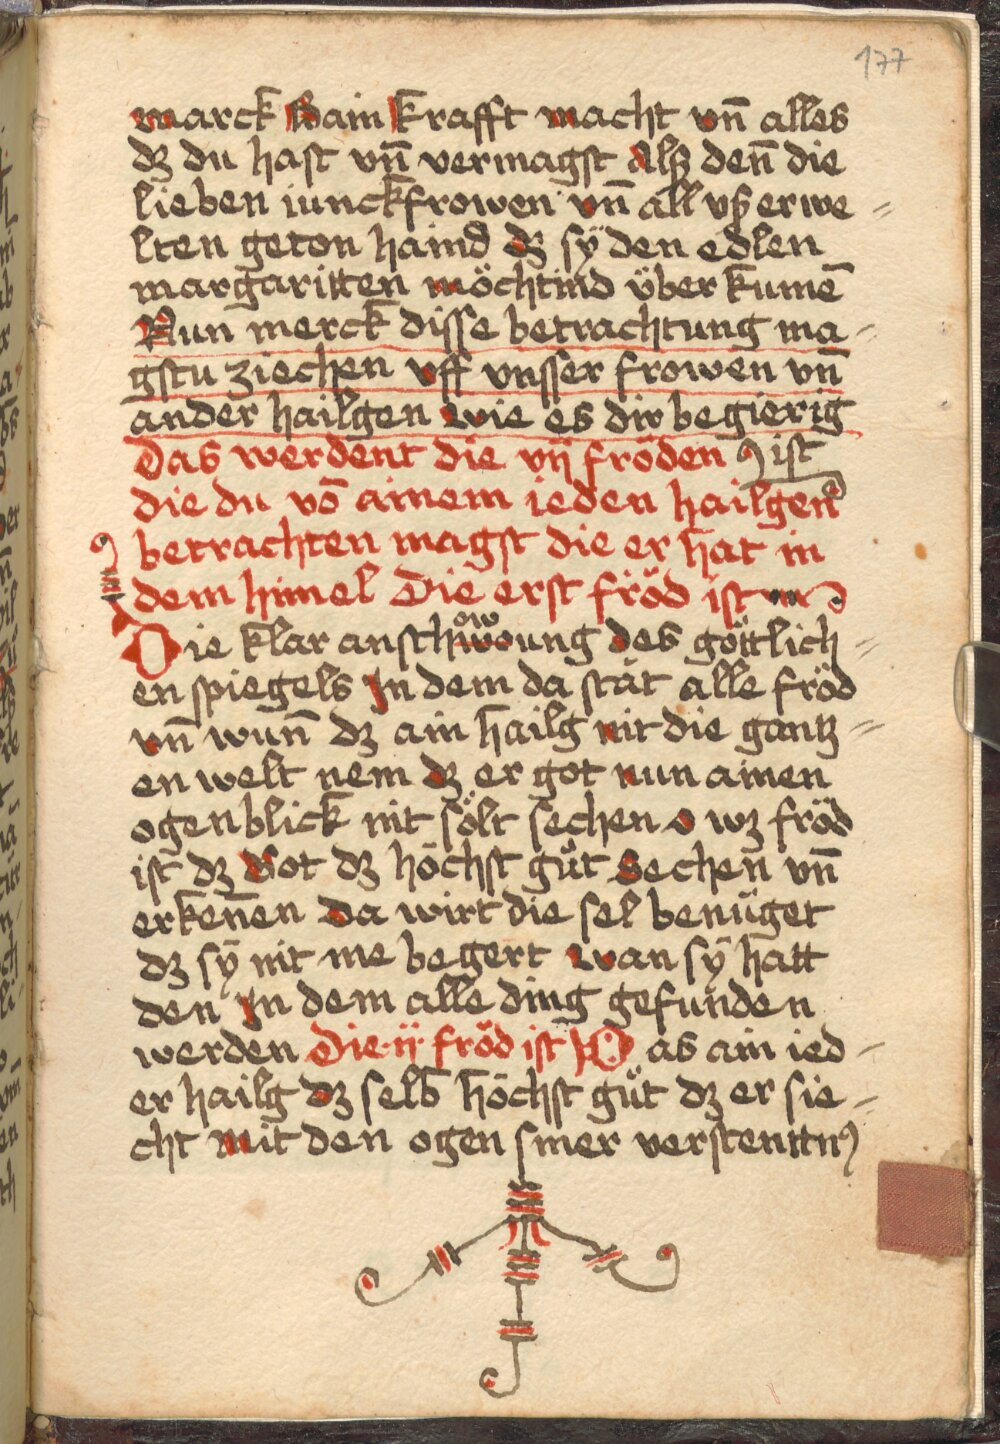 177
marck Bain krafft macht vn̄ alles
dʒ du hast vn̄ vermagst Alß den̄ die
lieben iunckfrowen vn̄ all vßerwe=
lten geton haind dʒ sÿ den edlen
margaritten möchtind überkumē
Nun merck disse betrachtung ma=
gstu ziechen vff vnsser frowen vn̄
ander hailgen wie es dir begierig
Das werdent die vij fröden ist
die du vō ainem ieden hailgen
betrachten magst die er hat in
dem himel Die erst fröd ist
Die klar anschowung des göttlich=
en spiegels In dem da stät alle fröd
vn̄ wun̄ dʒ ain hailg nit die gantz=
en welt nem dʒ er got nun ainen
ogenblick nit sölt sechen o wʒ fröd
ist dʒ Got dʒ höchst gůt Sechen vn̄
erken̄en Da wirt die sel benüget
dʒ sÿ nit me begert wan sÿ hatt
den In dem alle ding gefunden
werden Die ·ij· fröd ist Das ain ied=
er hailg dʒ selb höchst gůt dʒ er sie=
cht mit den ogen siner verstentnꝰ